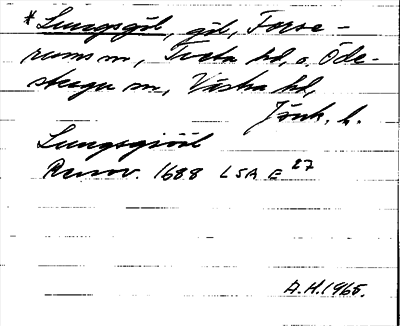 *Lungsgöl, göl, Forse-
rums sn, Tveta hd, o. Öde-
stugu sn, Västra hd,
Jönk. l.
Lungsgiööl
Renov. 1688 LSA E 27
A.H. 1965.